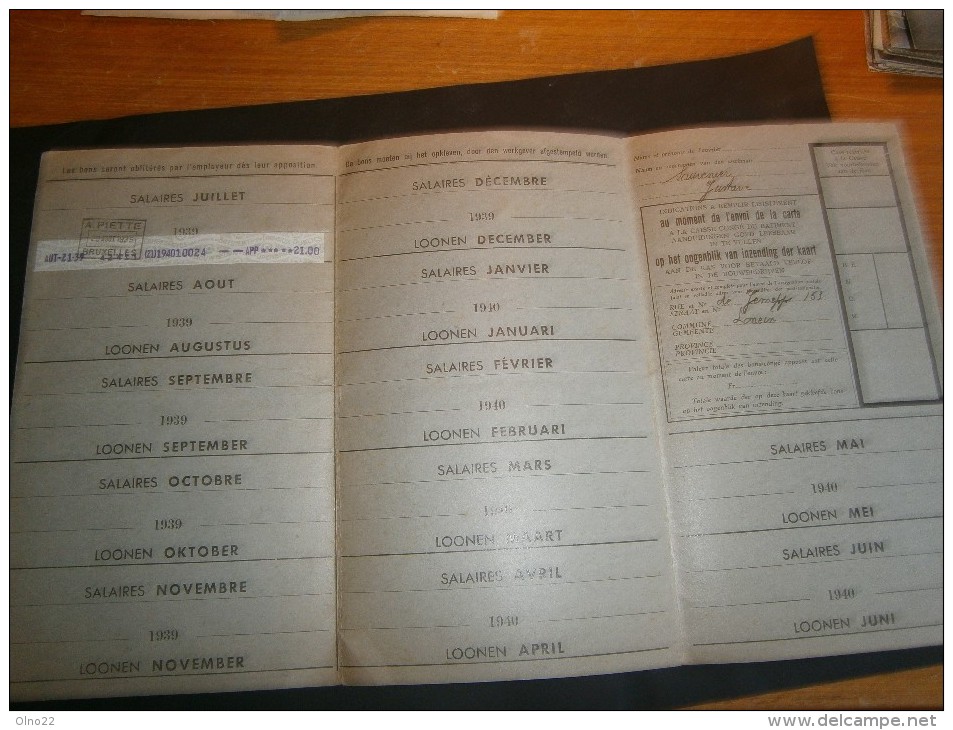 Les bons seront oblitérés par l'employeur dès leur apposition.
SALAIRES JUILLET
A. PIETTE
BRUXELLES
AUT-21-39
(2)194010024 -- APP*****21.00
SALAIRES AOUT
1939
LOONEN AUGUSTUS
SALAIRES SEPTEMBRE
1939
LOONEN SEPTEMBER
SALAIRES OCTOBRE
1939
LOONEN OKTOBER
SALAIRES NOVEMBRE
1939
LOONEN NOVEMBER
De bons moeten bij het opkleven, door den werkgever afgestempeld worden.
SALAIRES DÉCEMBRE
1939
LOONEN DECEMBER
SALAIRES JANVIER
1940
LOONEN JANUARI
SALAIRES FÉVRIER
1940
LOONEN FEBRUARI
SALAIRES MARS
LOONEN MAART
SALAIRES AVRIL
1940
LOONEN APRIL
Noms et prénoms de l'ouvrier
Naam en voornamen van den werkman
Gustave
INDICATIONS A REMPLIR
au moment de l'envoi de la carte
A LA CAISSE CONGÉ DU BATIMENT
AANDUIDINGEN
IN TE VULLEN
op het oogenblik van inzending der kaart
AAN DE KAS VOOR BETAALD VERLOF
IN DE BOUWBEDRIJVEN
RUE et No de Jemeppe 153
STRAAT en No
COMMUNE Loncin
GEMEENTE
PROVINCE
PROVINCIE
Valeur totale des bons apposés sur cette
carte au moment de l'envoi
Fr.
Totale waarde der op deze kaart geklefde bons
op het oogenblik van inzending.
SALAIRES MAI
1940
LOONEN MEI
SALAIRES JUIN
1940
LOONEN JUNI
Olno22
www.delcampe.net